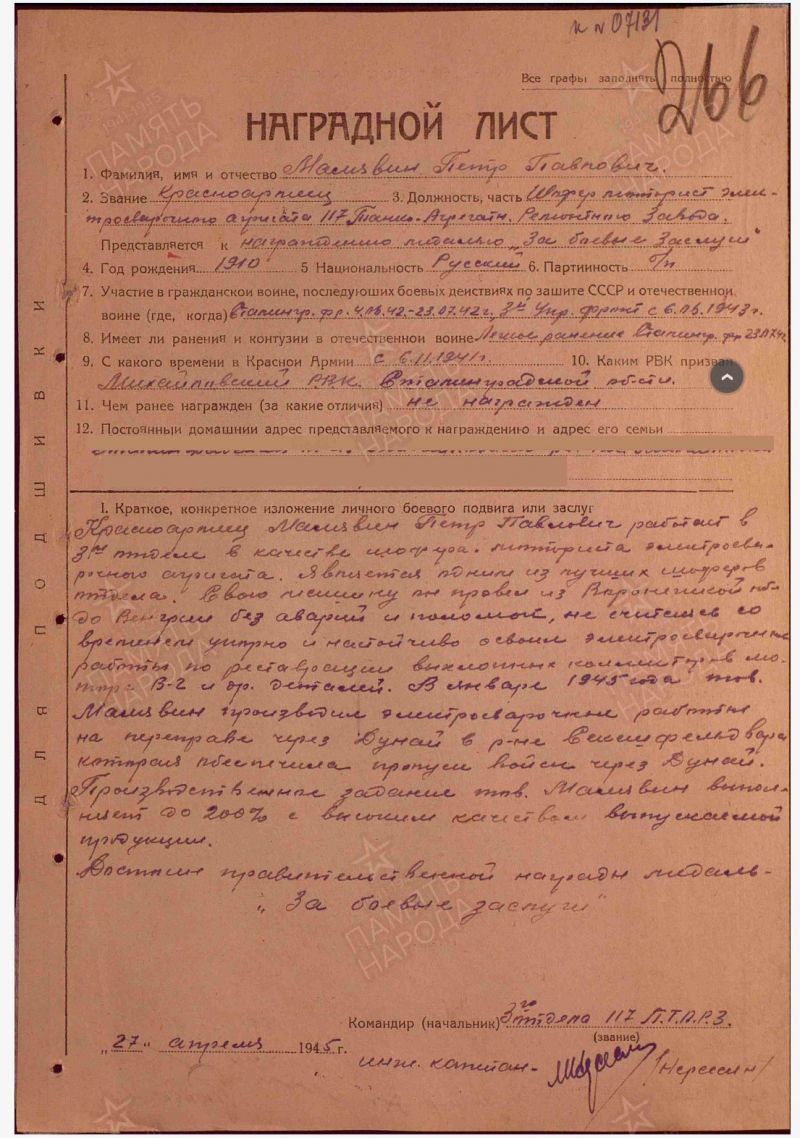 к № 07131
266
Все графы заполнять полностью
НАГРАДНОЙ ЛИСТ
1. Фамилия, имя и отчество Малявин Петр Павлович.
2. Звание Красноармеец 3. Должность, часть Шофер моторист элек-
тросварочного агрегата 117 Танко-Агрегатн. Ремонтного Завода.
Представляется к награждению медалью „За боевые Заслуги"
4. Год рождения 1910 5 Национальность Русский 6. Партийность б/п
7. Участие в гражданской войне, последующих боевых действиях по защите СССР и отечественной
войне (где, когда) Сталингр. фр. 23.07.42г, 3й Укр. фронт с 1943г.
8. Имеет ли ранения и контузии в отечественной войне Легкое ранение Сталингр. фр
9. С какого времени в Красной Армии с 6.11.1941г. 10. Каким РВК призван
Михайловский РВК. Сталинградской об-сти.
11. Чем ранее награжден (за какие отличия) не награжден
12. Постоянный домашний адрес представляемого к награждению и адрес его семьи
I. Краткое, конкретное изложение личного боевого подвига или заслуг
Красноармеец Малявин Петр Павлович работает в
3м отделе в качестве шофера-моториста электросва-
рочного агрегата. Является одним из лучших шоферов
отдела. Свою машину он провел из Воронежской об-
до Венгрии без аварий и поломок, не считаясь со
временем упорно и настойчиво освоил электросварочные
работы по реставрации выхлопных коллекторов мо-
тора В-2 и др. деталей. В январе 1945 года тов.
Малявин производил электросварочные работы
на переправе через Дунай в р-не
которая обеспечила пропуск войск через Дунай.
Производственное задание тов. Малявин выпол-
няет до 200% с высоким качеством выпускаемой
продукции.
Достоин правительственной награды медаль-
„За боевые заслуги"
Командир (начальник) 3го отдела 117 П.Т.А.Р.З.
(звание)
„27" апреля 1945 г.
инж. капитан- /Нерсесян/
ДЛЯ ПОДШИВКИ
ПАМЯТЬ НАРОДА